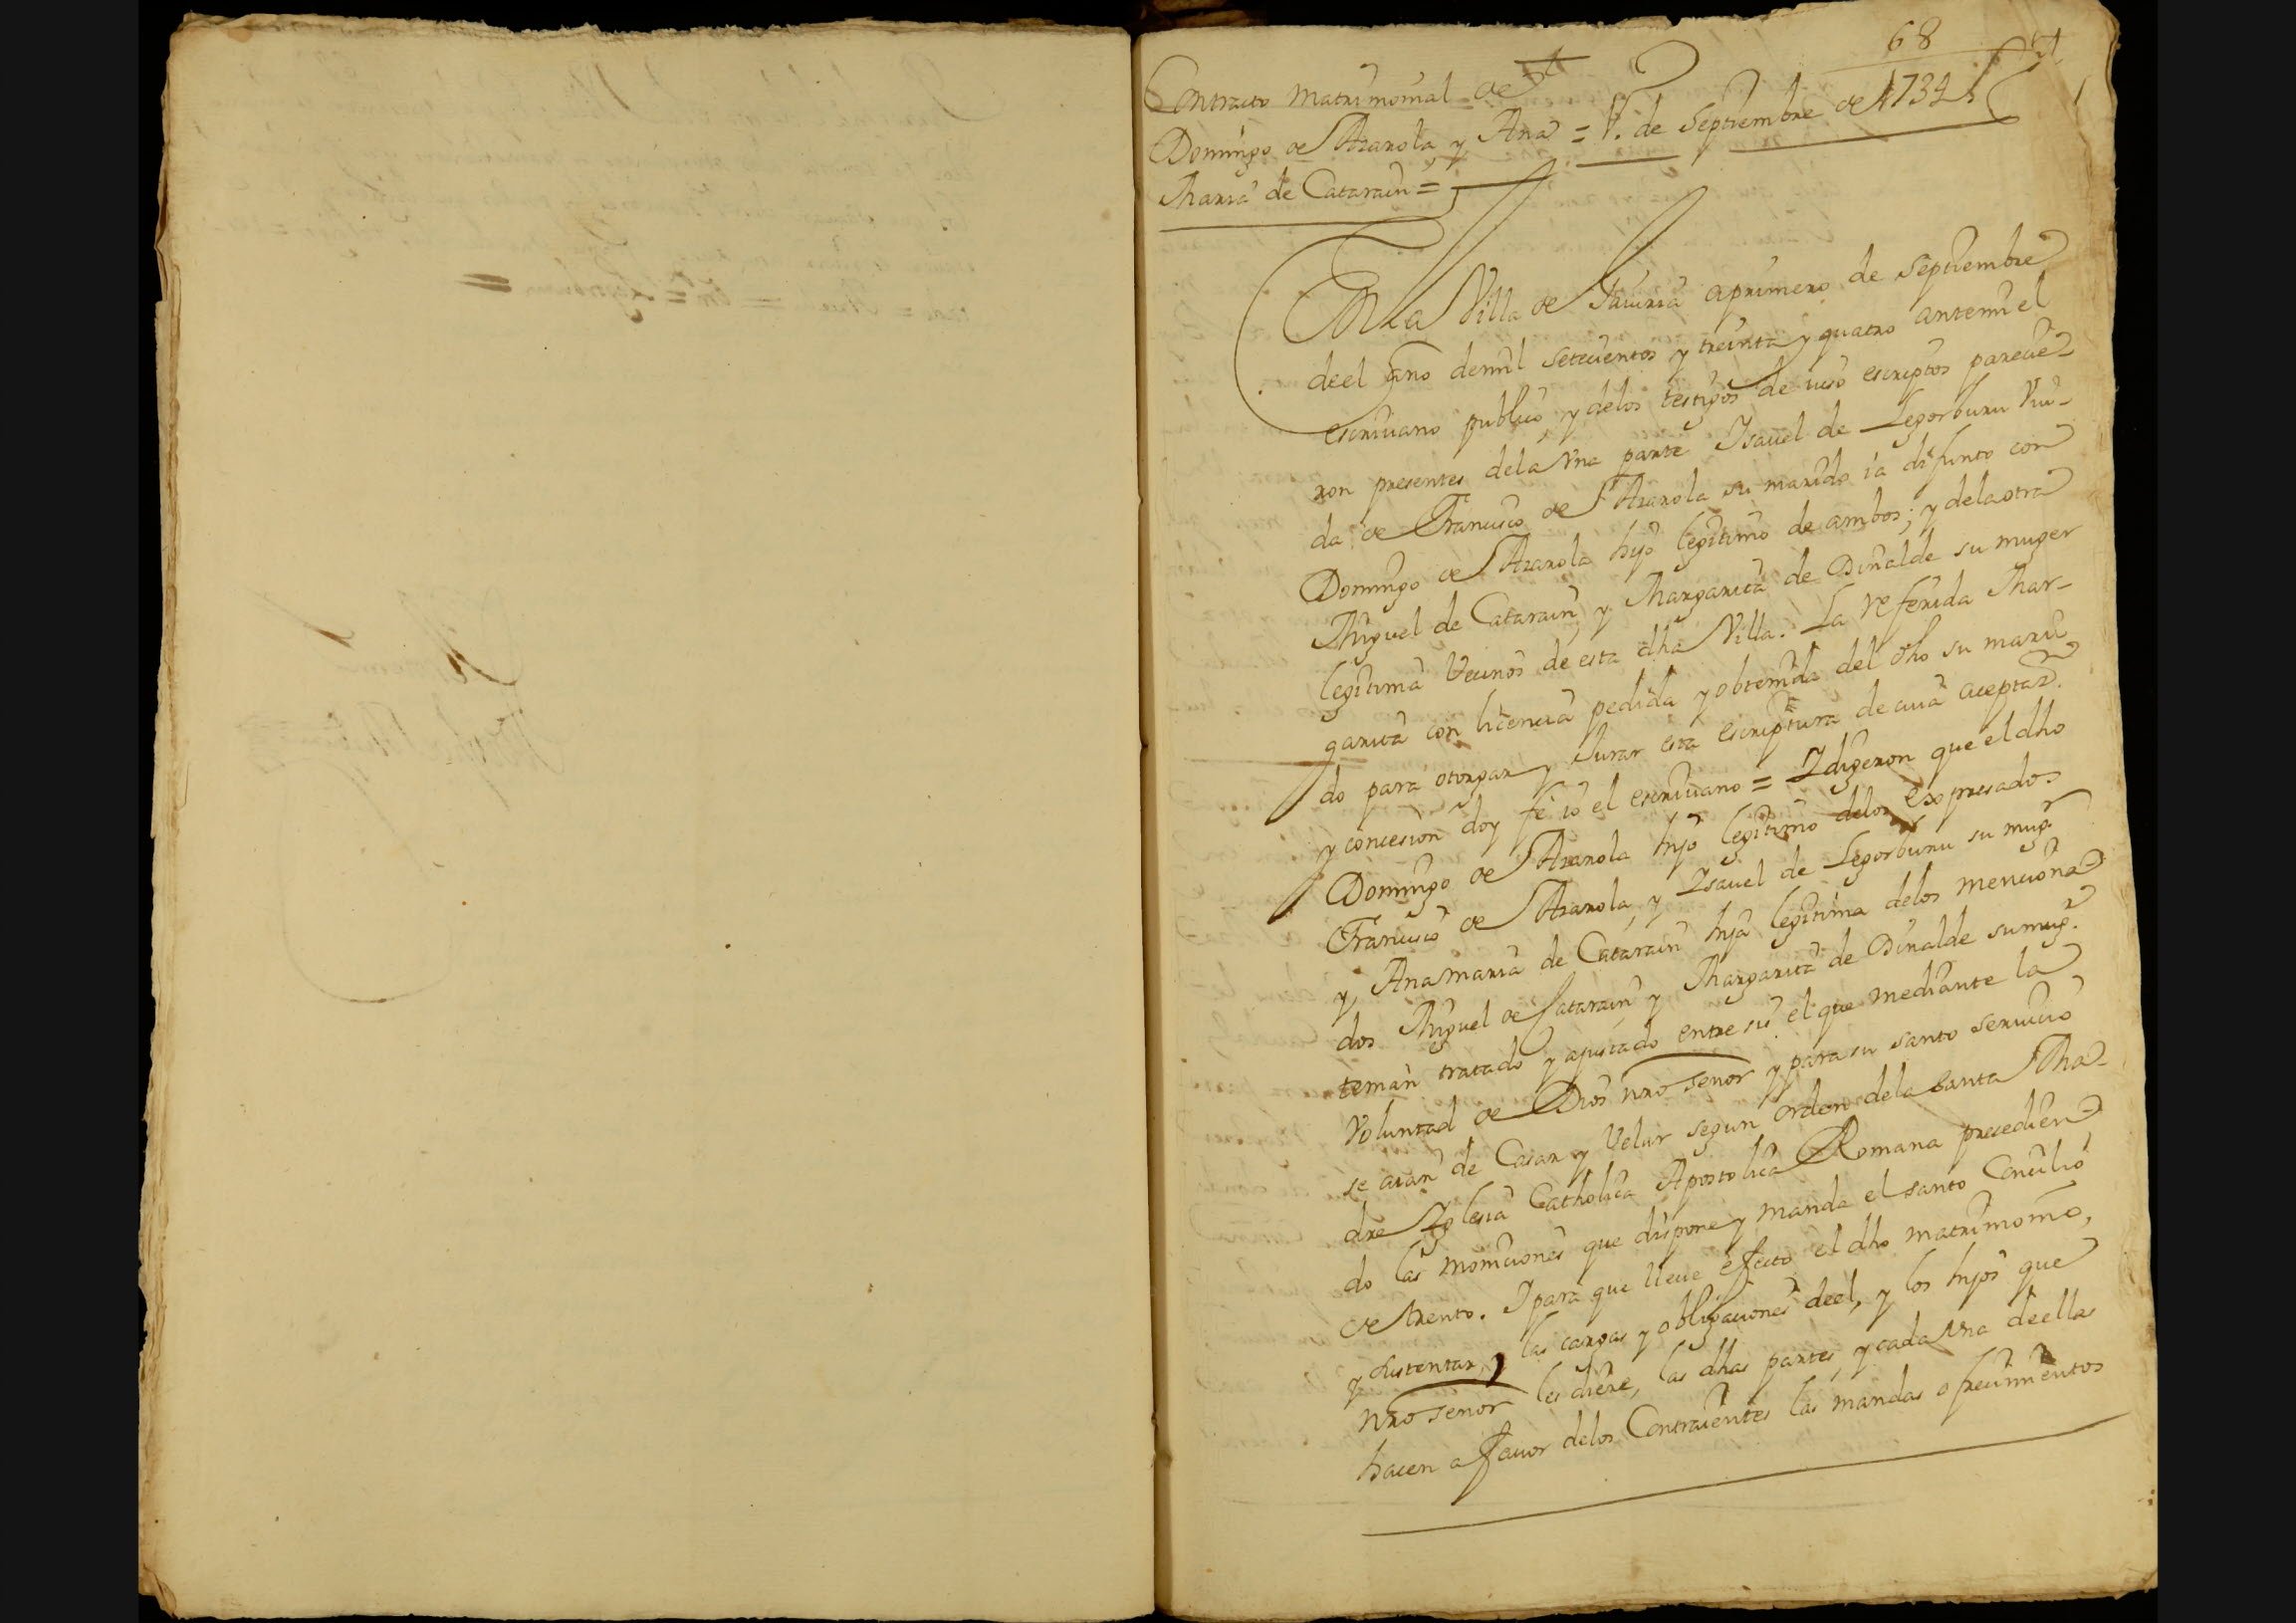 68
Contracto Matrimonial de
Domingo de Azarola y Ana = 1º. de Septiembre de 1734
Maria de Catarain =
En la Villa de a primero de Septiembre
de el año de mil setecientos y treinta y quatro ante mi el
escrivano publico y de los testigos de iuso escriptos parecie-
ron presentes de la Vna parte Ysauel de Legorburu Viu-
da de Francisco de Azarola su marido ia difunto con
Domingo de Azarola hijo legitimo de ambos; y de la otra
Miguel de Catarain y Margarita de Dinalde su muger
legitima Vecinos de esta dha Villa. La referida Mar-
garita con licencia pedida y obtenida del dho su mari
do para otorgar y Jurar esta escriptura de cuia aceptaz.
y concesion doy fe io el escrivano = Y digeron que el dho
Domingo de Azarola hijo legitimo de los expresados
Francisco de Azarola y Ysauel de Legorburu su mugr
y Ana maria de Catarain hija legitima de los menciona
dos Miguel de Catarain y Margarita de Dinalde su mugr.
tenian tratado y ajustado entre si el que mediante la
Voluntad de Dios nro senor y para su santo seruicio
se aian de Casar y Velar segun orden de la Santa Ma-
dre Yglesia Catholica Apostolica Romana precedien
do las moniciones que dispone y manda el santo Concilio
de Trento. Y para que lleue efecto el dho matrimonio,
y sustentar las cargas y obligaciones de el, y los hijos que
nro senor les diere, las dhas partes y cada Vna de ellas
hacen a fauor de los Contraientes las mandas ofrecimientos